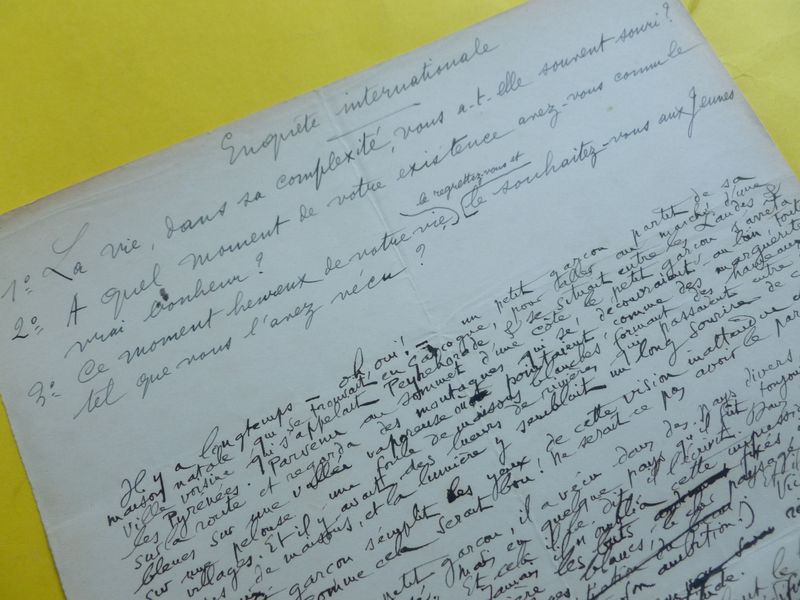 Enquête internationale
1º La vie, dans sa complexité, vous a-t-elle souvent souri?
2º A quel moment de votre existence avez-vous connu le
vrai bonheur?
le regrettez-vous et
3º Ce moment heureux de votre vie, le souhaitez-vous aux Jeunes
tel que vous l'avez vécu?
Il y a longtemps – oh, oui! – un petit garçon partit de sa
maison natale qui se trouvait en Gascogne, pour aller au marché d'une
ville voisine qui s'appelait Peyrehorade & se situait entre les Landes &
les Pyrénées. Parvenu au sommet d'une côte, le petit garçon s'arrêta
sur la route et regarda des montagnes qui se découvraient, au loin, tout
blanches sur une vallée vaporeuse où pointaient, comme des marguerites
sur une pelouse, une foule de maisons blanches formant des hameaux,
villages. Et il y avait des lueurs de rivières qui passaient entre
de maisons, et la lumière y semblait un long sourire de
garçon s'emplit les yeux de cette vision inattendue
comme cela serait bon! Ne serait-ce pas avoir le par
petit garçon, il a vécu dans des pays divers
mais en quelque pays qu'il fût toujours
Et cela
jamais il n'oublia cette impression
les fixés
blancs, le paysage
son ambition!)